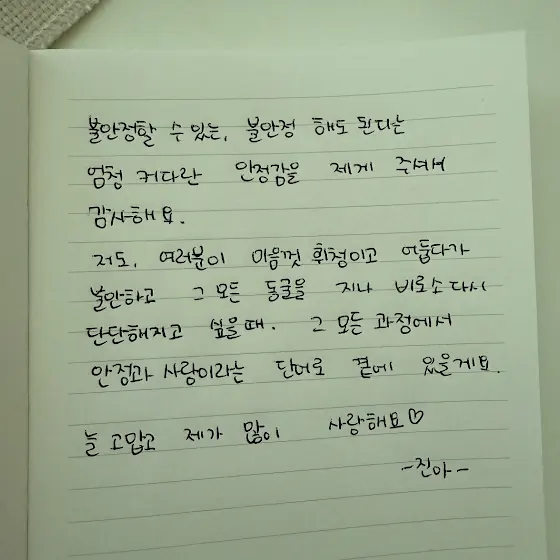 불안정할 수 있는, 불안정 해도 된다는
엄청 커다란 안정감을 제게 주셔서
감사해요.
저도, 여러분이 마음껏 휘청이고 어둡다가
불안하고 그 모든 동굴을 지나 비로소 다시
단단해지고 싶을 때. 그 모든 과정에서
안정과 사랑이라는 단어로 곁에 있을게요.
늘 고맙고 제가 많이 사랑해요♡
-진아-